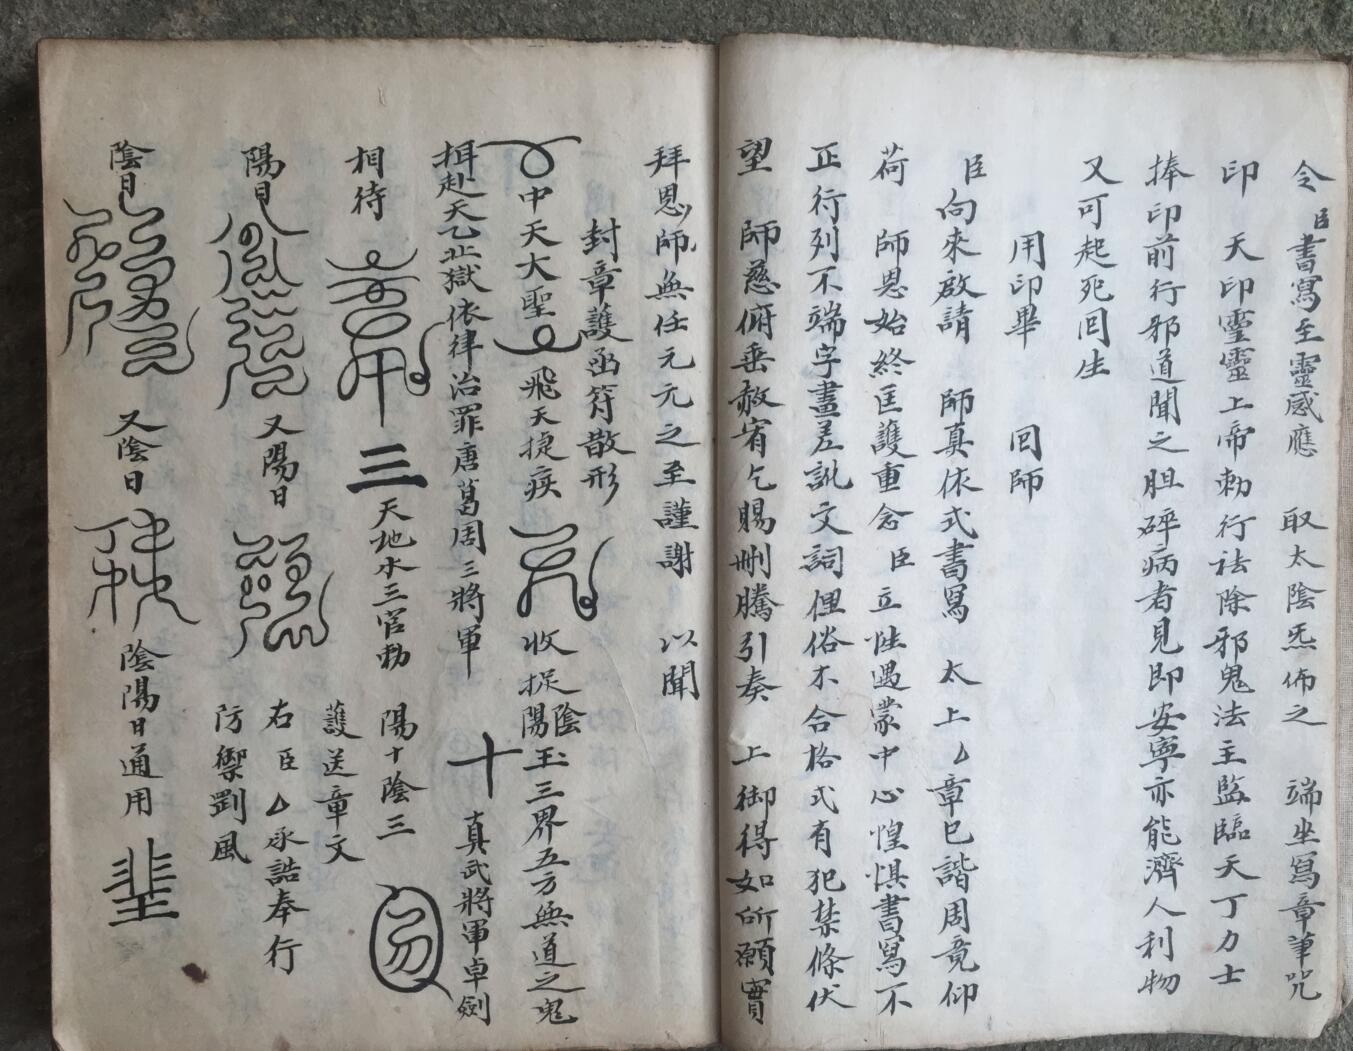 令臣書寫至靈感應 取太陰炁佈之 端坐寫章筆咒
印 天印靈靈上帝勅行法除邪鬼法主監臨天丁力士
捧印前行邪道聞之胆碎病者見即安寧亦能濟人利物
又可起死囘生
用印畢 囘師
臣向來啟請 師真依式書寫 太上厶章已諧周竟仰
荷 師恩始終匡護重念 臣立性遇蒙中心惶惧書寫不
正行列不端字畫差訛文詞俚俗不合格式有犯禁條伏
望 師慈俯垂赦宥乞賜刪騰引奏 上御得如所願實
拜恩師無任元元之至謹謝 以聞
封章護函符散形
中天大聖 飛天捷疾 收捉陰陽 三界五方無道之鬼
押赴天乙北獄依律治罪唐葛周三將軍 真武將軍卓劍
相待 三 天地水三官勅 陽十陰三
護送章文
右臣厶承誥奉行
防禦劉風
陽日 又陽日
陰日 又陰日 陰陽日通用